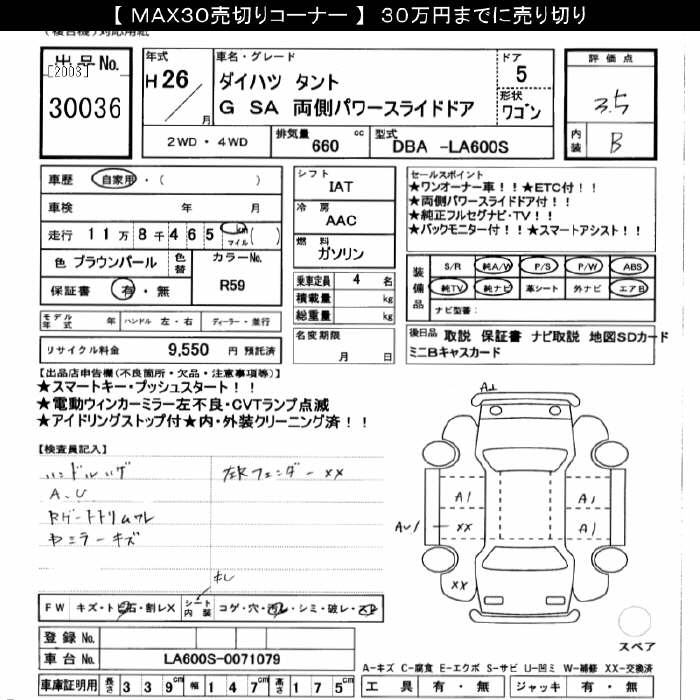 【 MAX30売切りコーナー 】 30万円までに売り切り
出品No.
[2003]
30036
年式
H26
月
車名・グレード
ダイハツ タント
G SA 両側パワースライドドア
ドア
5
形状
ワゴン
評価点
3.5
内装
B
2WD・4WD
排気量 660 cc
型式 DBA -LA600S
車歴 自家用・( )
車検 年 月
走行 11万8千465 km マイル ( )
色 ブラウンパール
色替
カラーNo.
R59
保証書 有・無
シフト
IAT
冷房
AAC
燃料
ガソリン
乗車定員 4 名
積載量 kg
総重量 kg
名変期限
月 日
セールスポイント
★ワンオーナー車！！★ETC付！！
★両側パワースライドドア付！！
★純正フルセグナビ・TV！！
★バックモニター付！！★スマートアシスト！！
装備品
S/R 純A/W P/S P/W ABS
純TV 純ナビ 革シート 外ナビ エアB
ナビ型番：
モデル年式 年 ハンドル 左・右 ディーラー・並行
リサイクル料金 9,550 円 預託済
後日品 取説 保証書 ナビ取説 地図SDカード
ミニBキャスカード
【出品店申告欄(不良箇所・欠品・注意事項等)】
★スマートキー・プッシュスタート！！
★電動ウィンカーミラー左不良・CVTランプ点滅
★アイドリングストップ付★内・外装クリーニング済！！
【検査員記入】
ハンドルハゲ
A、U
Rゲートトリムワレ
左右フェンダーXX
A1
A1
A1
XX
XX
FW キズ・トビ石・割レX
シート内装
コゲ・穴・汚レ・シミ・破レ・
登録No.
車台No. LA600S-0071079
スペア
A-キズ C-腐食 E-エクボ S-サビ U-凹ミ W-補修 XX-交換済
車庫証明用 長さ 339cm 幅 147cm 高さ 175cm
工具 有・無 ジャッキ 有・無